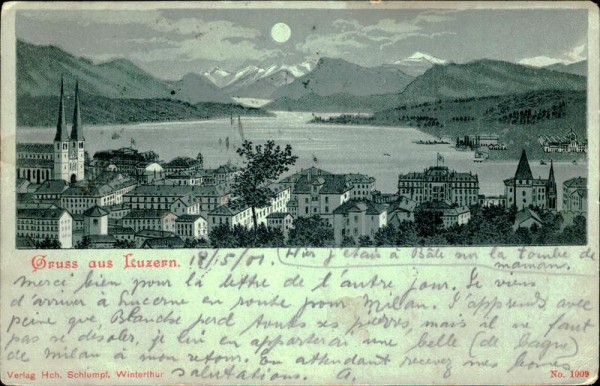 Gruss aus Luzern. 18/5/01. Hier j'étais à Bâle sur la tombe de
maman.
Merci bien pour la lettre de l'autre jour. Je viens
d'arriver à Lucerne en route pour Milan. J'apprends avec
peine que Blanche perd toutes ses pierres, mais il ne faut
pas se désoler, je lui en apporterai une belle (de bague)
de Milan à mon retour. En attendant recevez mes bonnes
salutations. A.
Verlag Hch. Schlumpf, Winterthur No. 1009